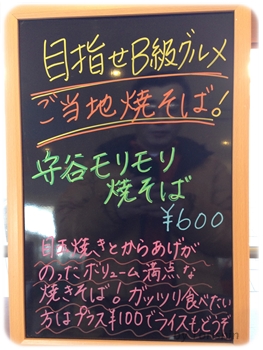 目指せB級グルメ
ご当地焼そば!
守谷モリモリ
焼そば
¥600
目玉焼きとからあげが
のったボリューム満点な
焼きそば!ガッツリ食べたい
方はプラス¥100でライスもどうぞ